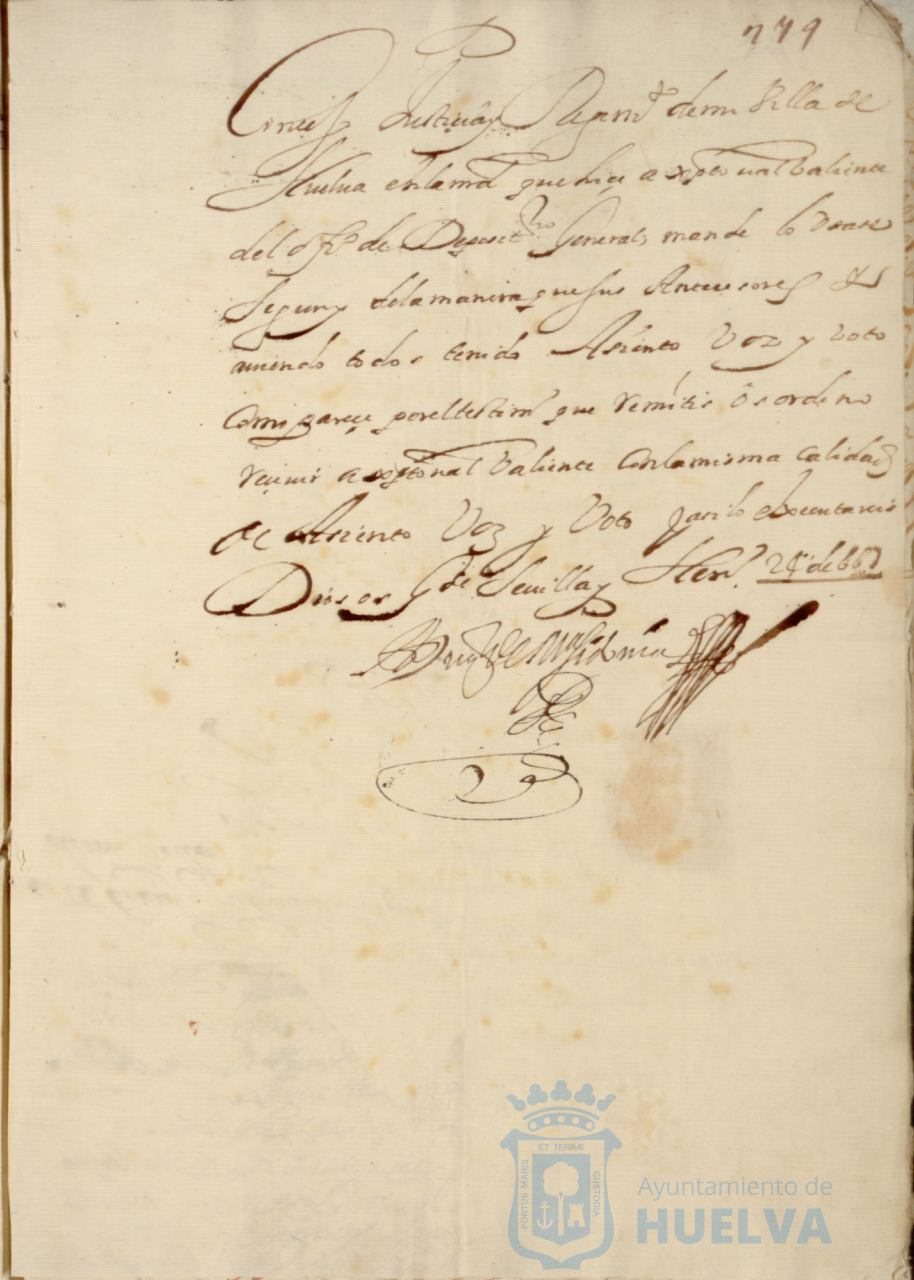 279
Concejo Justicia y Regim.to de mi Villa de
Huelua en la md que hice a xptoual Valiente
del off.o de Deposit.rio General, mande lo Vsase
Segun y de la manera que sus Antecesores y
auiendo todos tenido Asiento Voz y Voto
como parece por el testim.o que remitis Os ordeno
reciuir a xptoual Valiente con la misma calidad
de Asiento Voz y Voto y assi lo executareis
Dios os G.de Seuilla y Hen.o 24 de 661
ET TERRÆ
PORTUS MARIS
CUSTODIA
Ayuntamiento de
HUELVA